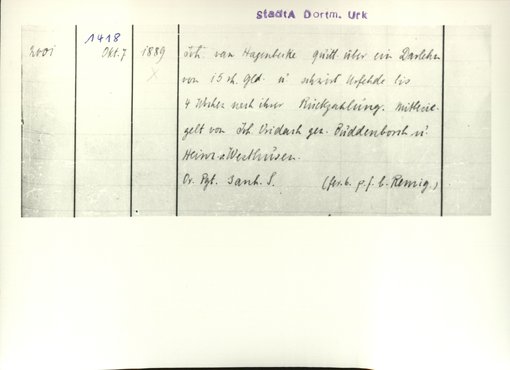 StadtA Dortm. Urk
1418
2001 Okt. 7 1889 Joh. van Hagenbeke quitt. über ein Darlehn
von 15 rh. Gld. u schwört Urfehde bis
4 Wochen nach ihrer Rückzahlung. Mitbesie-
gelt von Joh. Vridach gen. Püddenborch u'
Heinr. v Westhusen.
Or. Pgt. 3 anh. S. (fer. 6. p. f. b. Remig.)